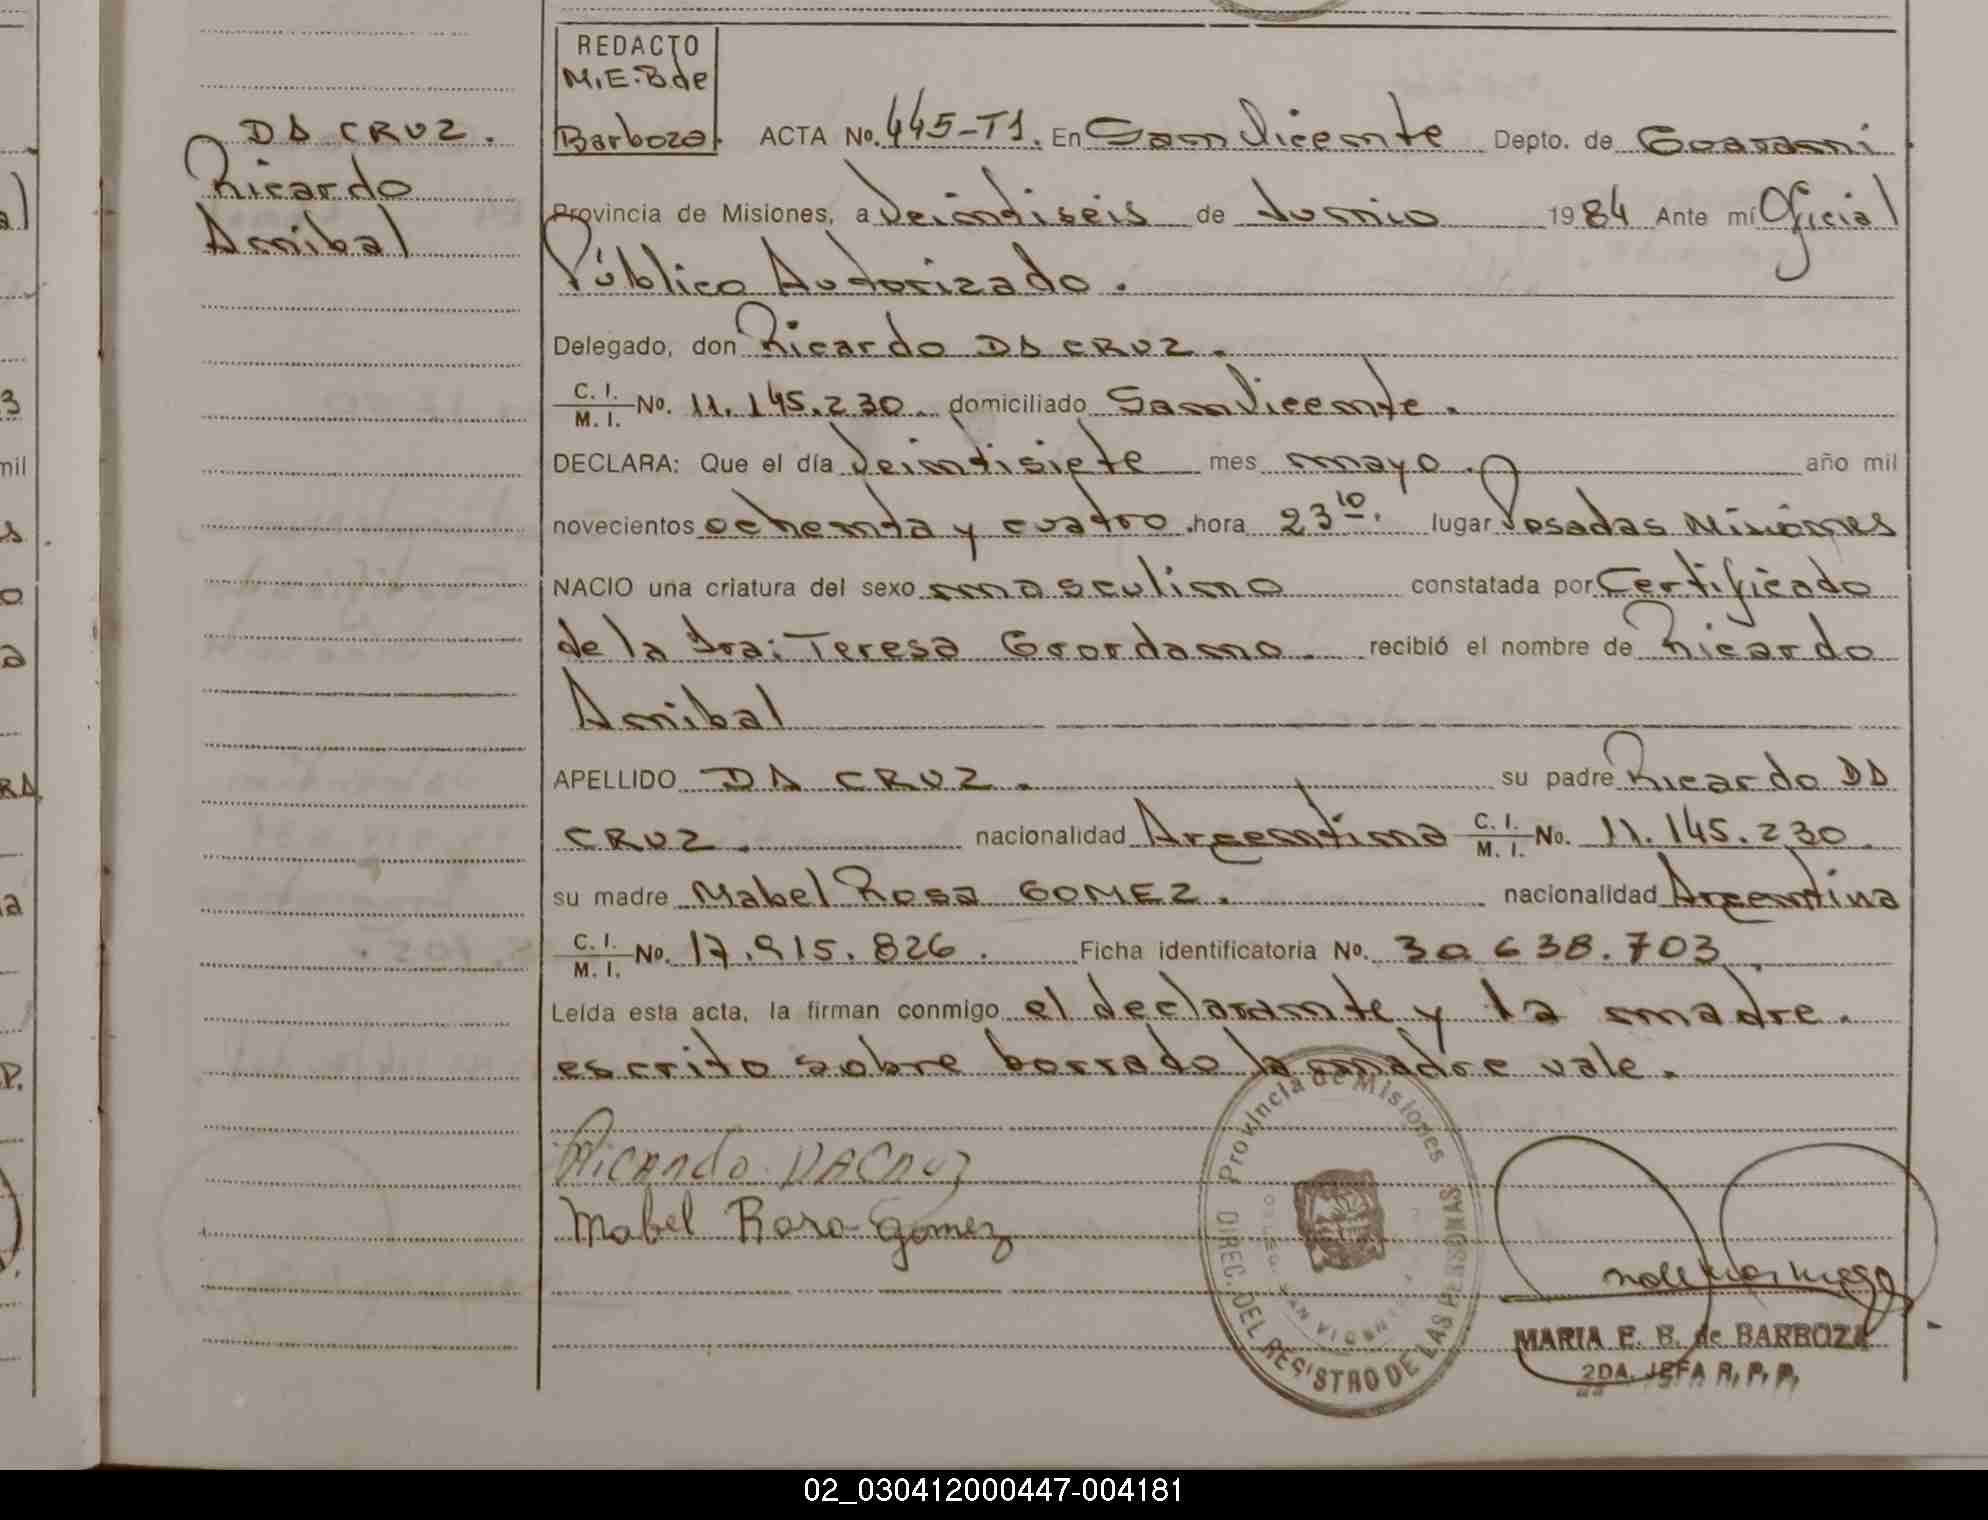 REDACTO
M.E.B de
Barboza.
DA CRUZ.
Ricardo
Anibal
ACTA No. 445-T1. En San Vicente Depto. de Guaraní.
Provincia de Misiones, a Veintiseis de Junio 1984 Ante mí Oficial
Público Autorizado.
Delegado, don Ricardo DA CRUZ.
C. I.
M. I. No. 11.145.230. domiciliado San Vicente.
DECLARA: Que el día Veintisiete mes mayo. año mil
novecientos ochenta y cuatro. hora 23 10. lugar Posadas Misiones
NACIO una criatura del sexo masculino constatada por Certificado
de la Dra: Teresa Giordano. recibió el nombre de Ricardo
Anibal
APELLIDO DA CRUZ. su padre Ricardo DA
CRUZ. nacionalidad Argentina C. I. M. I. No. 11.145.230.
su madre Mabel Rosa GOMEZ. nacionalidad Argentina
C. I.
M. I. No. 17.915.826. Ficha identificatoria No. 30.638.703.
Leída esta acta, la firman conmigo el declarante y la madre.
escrito sobre borrado la madre vale.
Ricardo DA CRUZ
Mabel Rosa Gomez
Provincia de Misiones
DIREC. DEL REGISTRO DE LAS PERSONAS
SAN VICENTE
MARIA E. B. de BARBOZA
2DA. JEFA R. P. P.
02_030412000447-004181